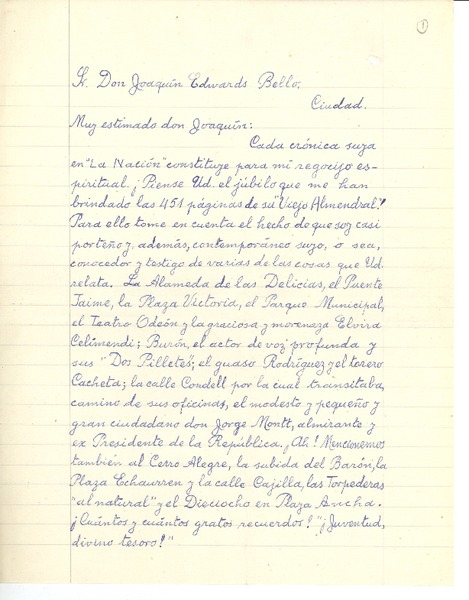 1
Sr. Don Joaquín Edwards Bello.
Ciudad.
Muy estimado don Joaquín:
Cada crónica suya
en "La Nación" constituye para mí regocijo es-
piritual. ¡Piense Ud. el júbilo que me han
brindado las 451 páginas de su "Viejo Almendral"!
Para ello tome en cuenta el hecho de que soy casi
porteño y, además, contemporáneo suyo, o sea,
conocedor y testigo de varias de las cosas que Ud.
relata. La Alameda de las Delicias, el Puente
Jaime, la Plaza Victoria, el Parque Municipal,
el Teatro Odeón y la graciosa y morenaza Elvira
Celimendi; Burón, el actor de voz profunda y
sus "Dos Pilletes"; el guaso Rodríguez y el torero
Cacheta; la calle Condell por la cual transitaba,
camino de sus oficinas, el modesto y pequeño y
gran ciudadano don Jorge Montt, almirante y
ex Presidente de la República. ¡Ah! Mencionemos
también al Cerro Alegre, la subida del Barón, la
Plaza Echaurren y la calle Cajilla, las Torpederas
"al natural" y el Dieciocho en Plaza Ancha.
¡Cuántos y cuántos gratos recuerdos! "¡Juventud,
divino tesoro!"